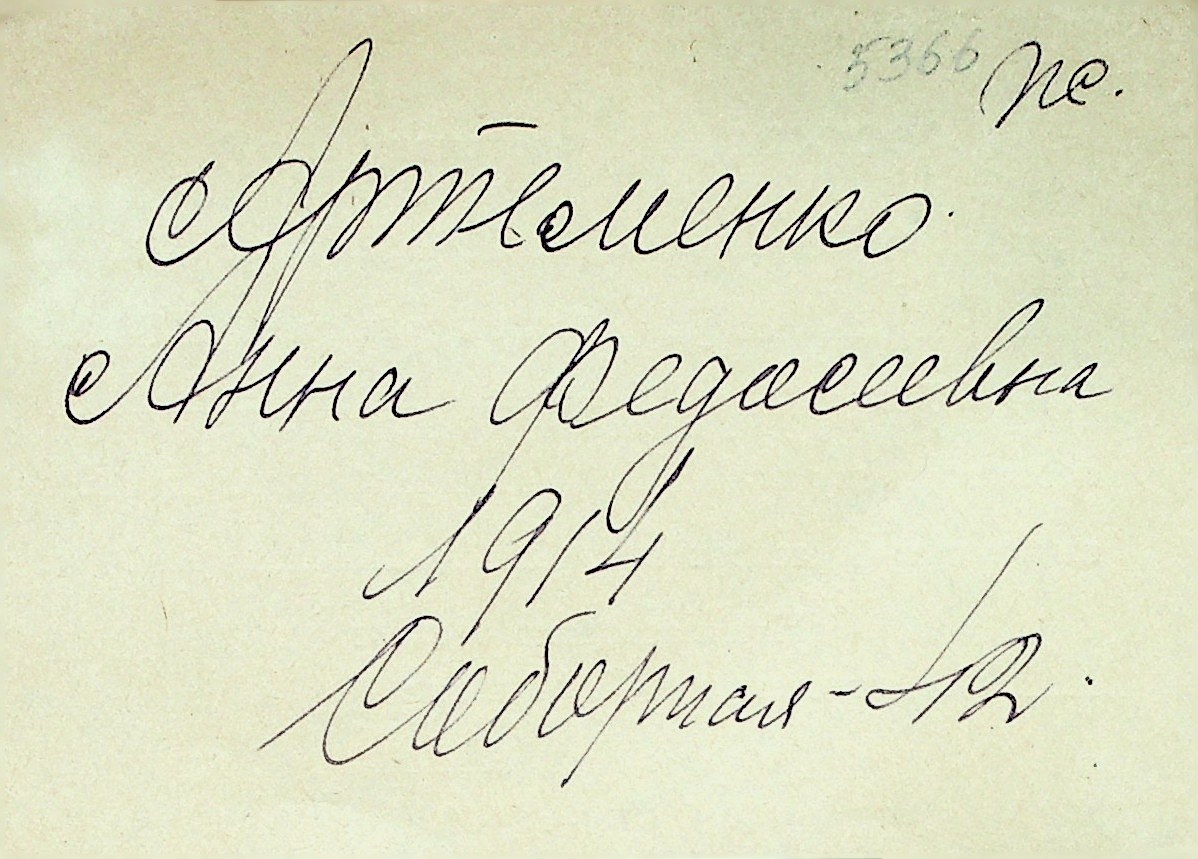 5366 пс.
Артёменко
Анна Федосеевна
1914
Соборная - 42.